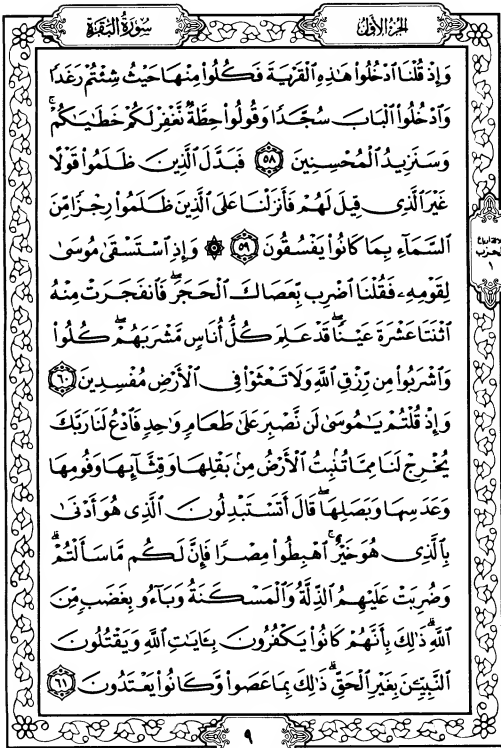 سُورَةُ البَقَرَةِ
الجُزءُ الأوّلُ
وَإِذْ قُلْنَا ٱدْخُلُوا۟ هَٰذِهِ ٱلْقَرْيَةَ فَكُلُوا۟ مِنْهَا حَيْثُ شِئْتُمْ رَغَدًا
وَٱدْخُلُوا۟ ٱلْبَابَ سُجَّدًا وَقُولُوا۟ حِطَّةٌ نَّغْفِرْ لَكُمْ خَطَٰيَٰكُمْ ۚ
وَسَنَزِيدُ ٱلْمُحْسِنِينَ ٥٨ فَبَدَّلَ ٱلَّذِينَ ظَلَمُوا۟ قَوْلًا
غَيْرَ ٱلَّذِى قِيلَ لَهُمْ فَأَنزَلْنَا عَلَى ٱلَّذِينَ ظَلَمُوا۟ رِجْزًا مِّنَ
ٱلسَّمَآءِ بِمَا كَانُوا۟ يَفْسُقُونَ ٥٩ ۞ وَإِذِ ٱسْتَسْقَىٰ مُوسَىٰ
لِقَوْمِهِۦ فَقُلْنَا ٱضْرِب بِّعَصَاكَ ٱلْحَجَرَ ۖ فَٱنفَجَرَتْ مِنْهُ
ٱثْنَتَا عَشْرَةَ عَيْنًا ۖ قَدْ عَلِمَ كُلُّ أُنَاسٍ مَّشْرَبَهُمْ ۖ كُلُوا۟
وَٱشْرَبُوا۟ مِن رِّزْقِ ٱللَّهِ وَلَا تَعْثَوْا۟ فِى ٱلْأَرْضِ مُفْسِدِينَ ٦٠
وَإِذْ قُلْتُمْ يَٰمُوسَىٰ لَن نَّصْبِرَ عَلَىٰ طَعَامٍ وَٰحِدٍ فَٱدْعُ لَنَا رَبَّكَ
يُخْرِجْ لَنَا مِمَّا تُنۢبِتُ ٱلْأَرْضُ مِنۢ بَقْلِهَا وَقِثَّآئِهَا وَفُومِهَا
وَعَدَسِهَا وَبَصَلِهَا ۖ قَالَ أَتَسْتَبْدِلُونَ ٱلَّذِى هُوَ أَدْنَىٰ
بِٱلَّذِى هُوَ خَيْرٌ ۚ ٱهْبِطُوا۟ مِصْرًا فَإِنَّ لَكُم مَّا سَأَلْتُمْ ۗ
وَضُرِبَتْ عَلَيْهِمُ ٱلذِّلَّةُ وَٱلْمَسْكَنَةُ وَبَآءُو بِغَضَبٍ مِّنَ
ٱللَّهِ ۗ ذَٰلِكَ بِأَنَّهُمْ كَانُوا۟ يَكْفُرُونَ بِـَٔايَٰتِ ٱللَّهِ وَيَقْتُلُونَ
ٱلنَّبِيِّـۧنَ بِغَيْرِ ٱلْحَقِّ ۗ ذَٰلِكَ بِمَا عَصَوا۟ وَّكَانُوا۟ يَعْتَدُونَ ٦١
الحزب
١
٩